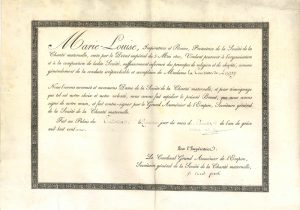 Marie-Louise, Impératrice et Reine, Protectrice de la Société de la
Charité maternelle, créée par le Décret impérial du 5 Mai 1810, Voulant pourvoir à l'organisation
et à la composition de ladite Société, suffisamment informée des principes de religion et de charité, comme
généralement de la conduite irréprochable et exemplaire de Madame la
Nous l'avons nommée et nommons Dame de la Société de Charité maternelle, et pour témoignage
qui lui est notre choix et notre volonté, nous lui avons fait expédier le présent Brevet, que nous avons
signé de notre main, et fait contre-signer par le Grand Aumônier de l'Empire, Secrétaire général
de la Société de la Charité maternelle.
Fait au Palais des le mois de de l'an de grâce
mil huit cent
Par l'Impératrice:
Le Cardinal Grand Aumônier de l'Empire,
Secrétaire général de la Société de la Charité maternelle,